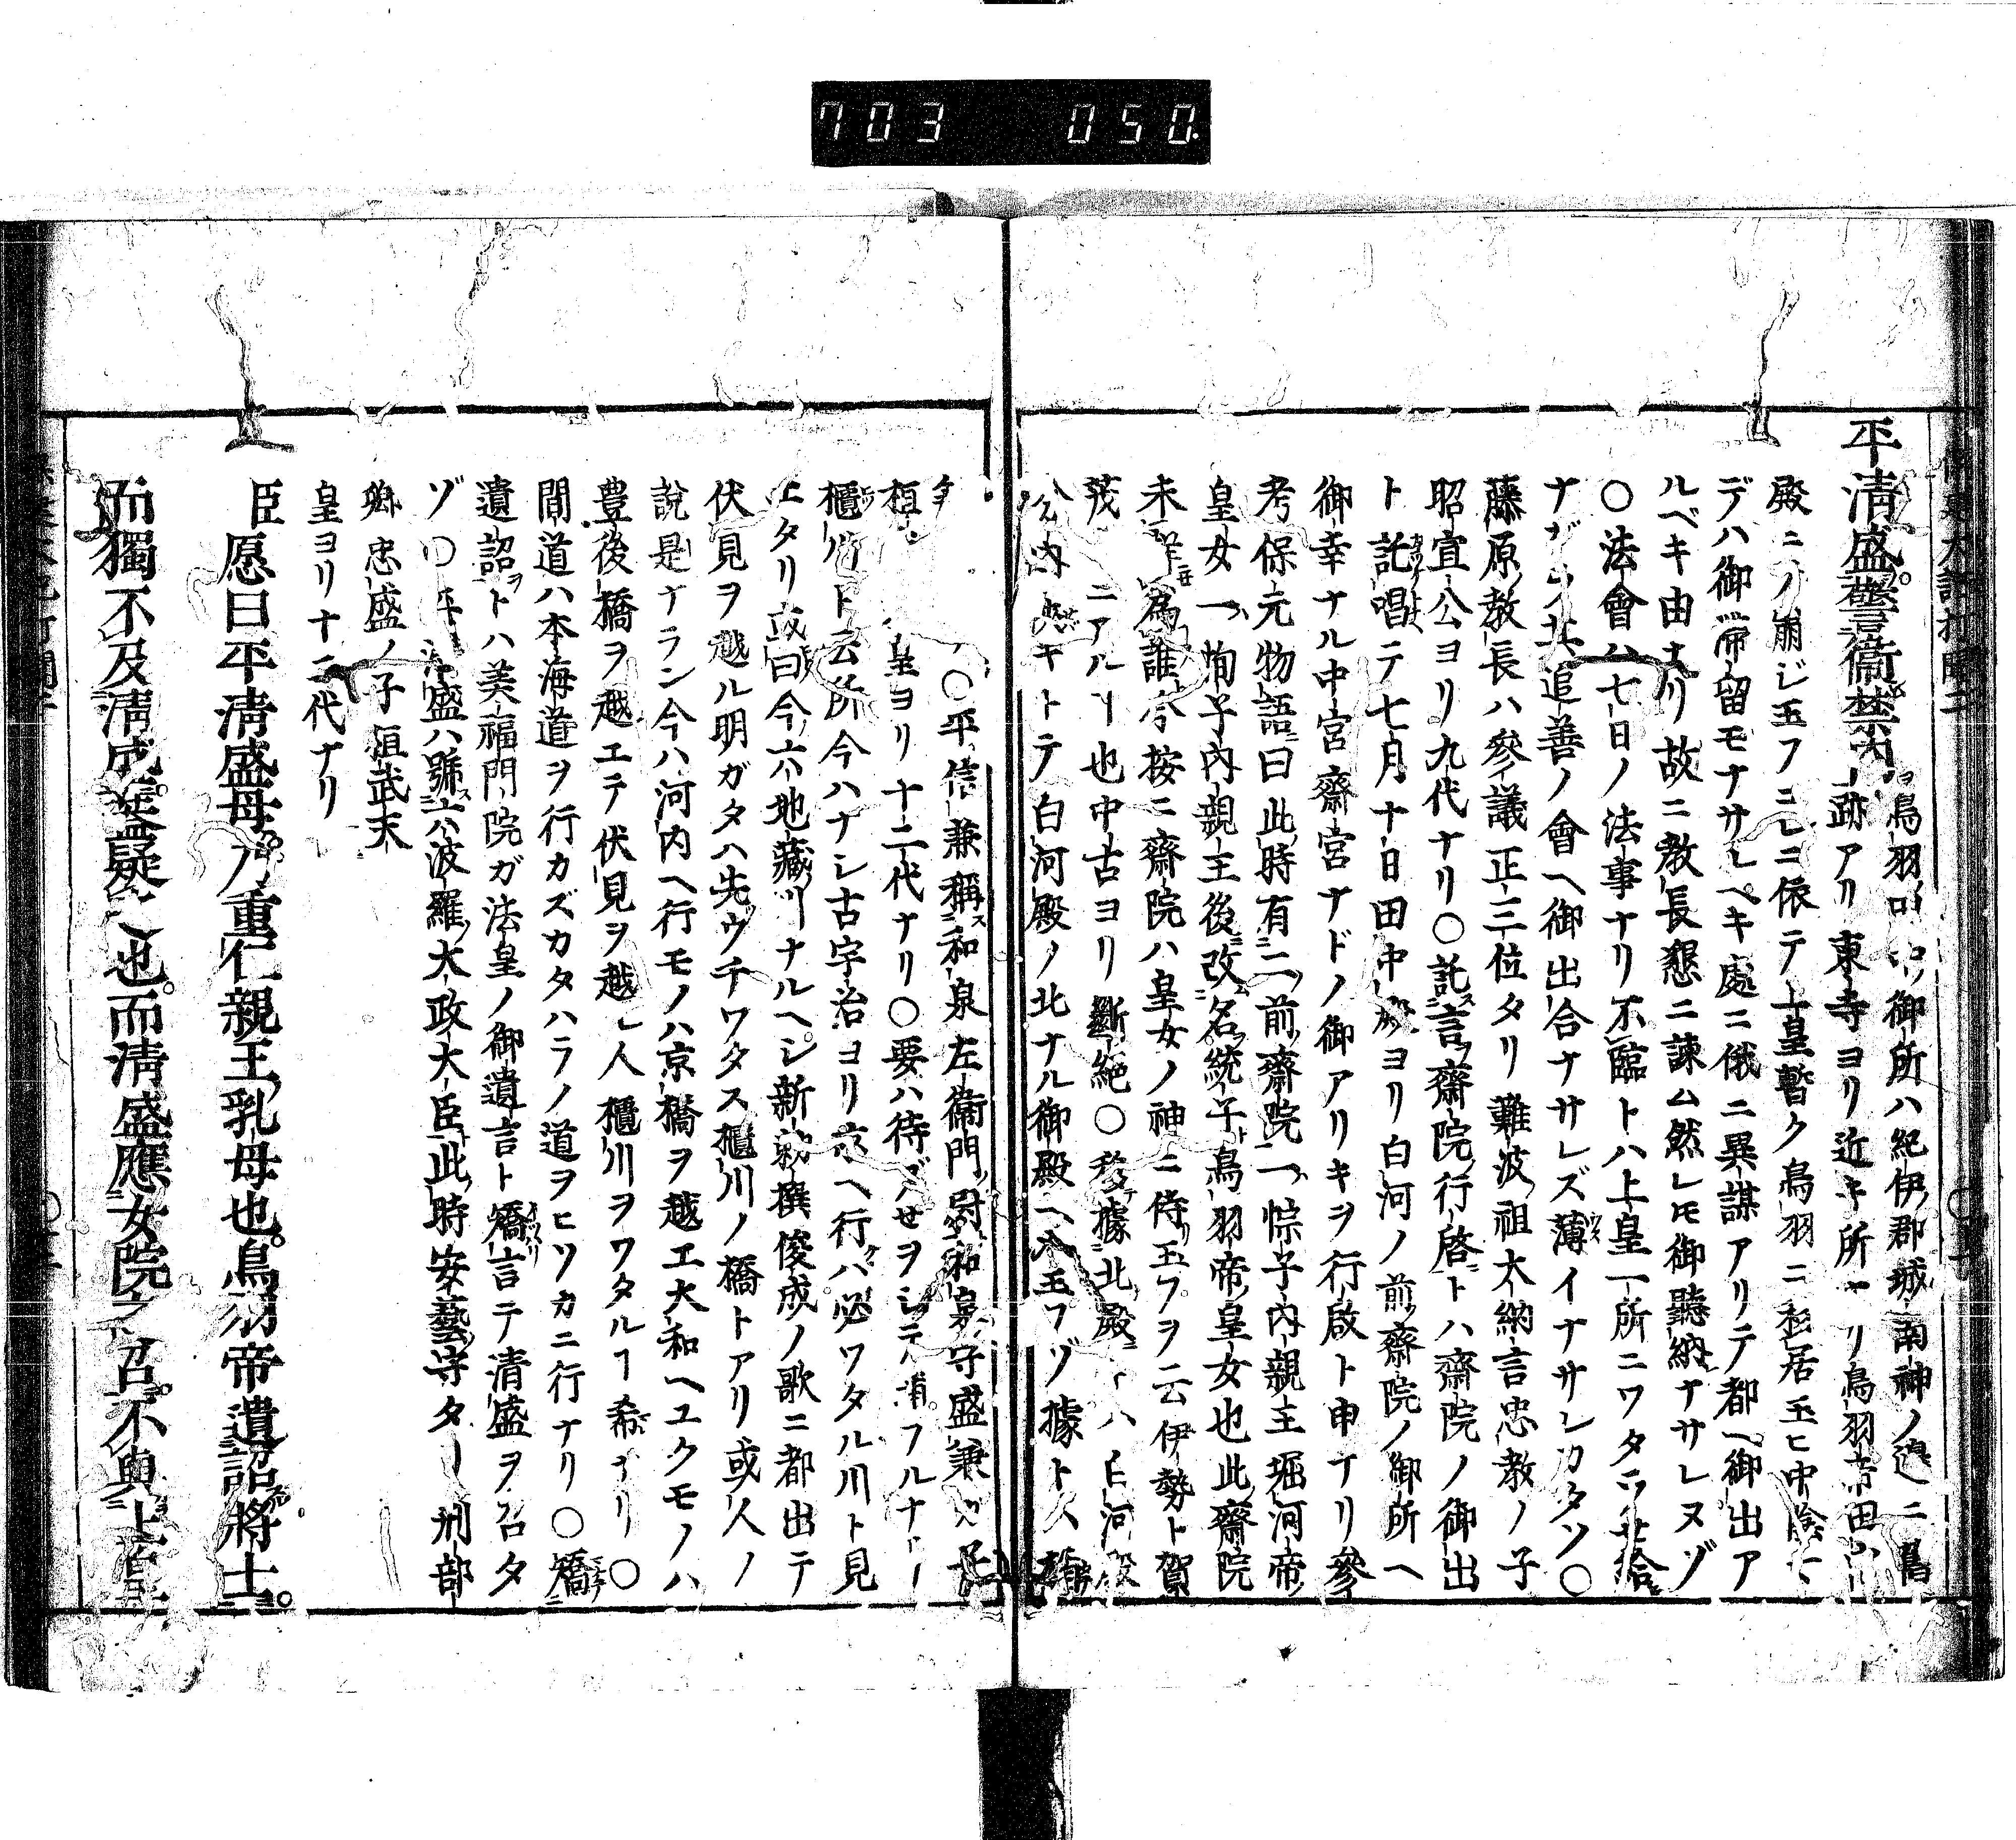 703 050
平清盛警衞禁内
鳥羽 御所ハ紀伊郡城南神ノ邊ニ鳥
跡アリ東寺ヨリ近キ所 リ鳥羽帝田
殿ニノ崩ジ玉フ 依テ上皇暫ク鳥羽ニ 居玉ヒ中陰
デハ御 留モナサレベキ處ニ俄ニ異謀アリテ都ヘ御出ア
ルベキ由ナリ故ニ教長懇ニ諫ム然レモ御聽納ナサレヌゾ
〇法會ハ七日ノ法事ナリ不臨トハ上皇一所ニワタラセ給
ナガラ其追善ノ會ヘ御出合ナサレズ薄イナサレカタソ〇
藤原教長ハ參議正三位タリ難波祖大納言忠教ノ子
昭宣公ヨリ九代ナリ〇託言齋院行啓トハ齋院ノ御出
ト託唱テ七月十日田中殿ヨリ白河ノ前齋院ノ御所ヘ
御幸ナル中宮齋宮ナドノ御アリキヲ行啟ト申ナリ參
考保元物語曰此時有二前齋院一悰子内親王堀河帝
皇女一恂子内親王後改名統子鳥羽帝皇女也此齋院
未詳爲誰今按ニ齋院ハ皇女ノ神ニ侍玉フヲ云伊勢ト賀
茂 ニアルヿ也中古ヨリ斷絶〇移據北殿 ハ白河殿
公内 キトテ白河殿ノ北ナル御殿ヘ入玉フゾ據ト
〇平信兼稱和泉左衞門尉和泉守盛兼 子
桓 皇ヨリ十二代ナリ〇要ハ待ブセヲシテ フルナ
櫃川ト云所今ハナシ古宇治ヨリ京ヘ行ハ必ワタル川ト見
エタリ或曰今六地藏川ナルヘシ新勅撰俊成ノ歌ニ都出テ
伏見ヲ越ル明ガタハ先ウチワタス櫃川ノ橋トアリ或人ノ
説是ナラン今ハ河内ヘ行モノハ京橋ヲ越エ大和ヘユクモノハ
豊後橋ヲ越エテ伏見ヲ越レ人櫃川ヲワタルヿ希ナリ〇
間道ハ本海道ヲ行カズカタハラノ道ヲヒソカニ行ナリ〇矯
遺詔トハ美福門院ガ法皇ノ御遺言ト矯言テ清盛ヲ召タ
ゾ〇平清盛ハ號六波羅太政大臣此時安藝守タリ刑部
卿忠盛ノ子桓武天
皇ヨリ十二代ナリ
臣愿曰平清盛母乃重仁親王乳母也鳥羽帝遺詔將士
而獨不及清盛蓋疑之也而清盛應女院之召不與上皇